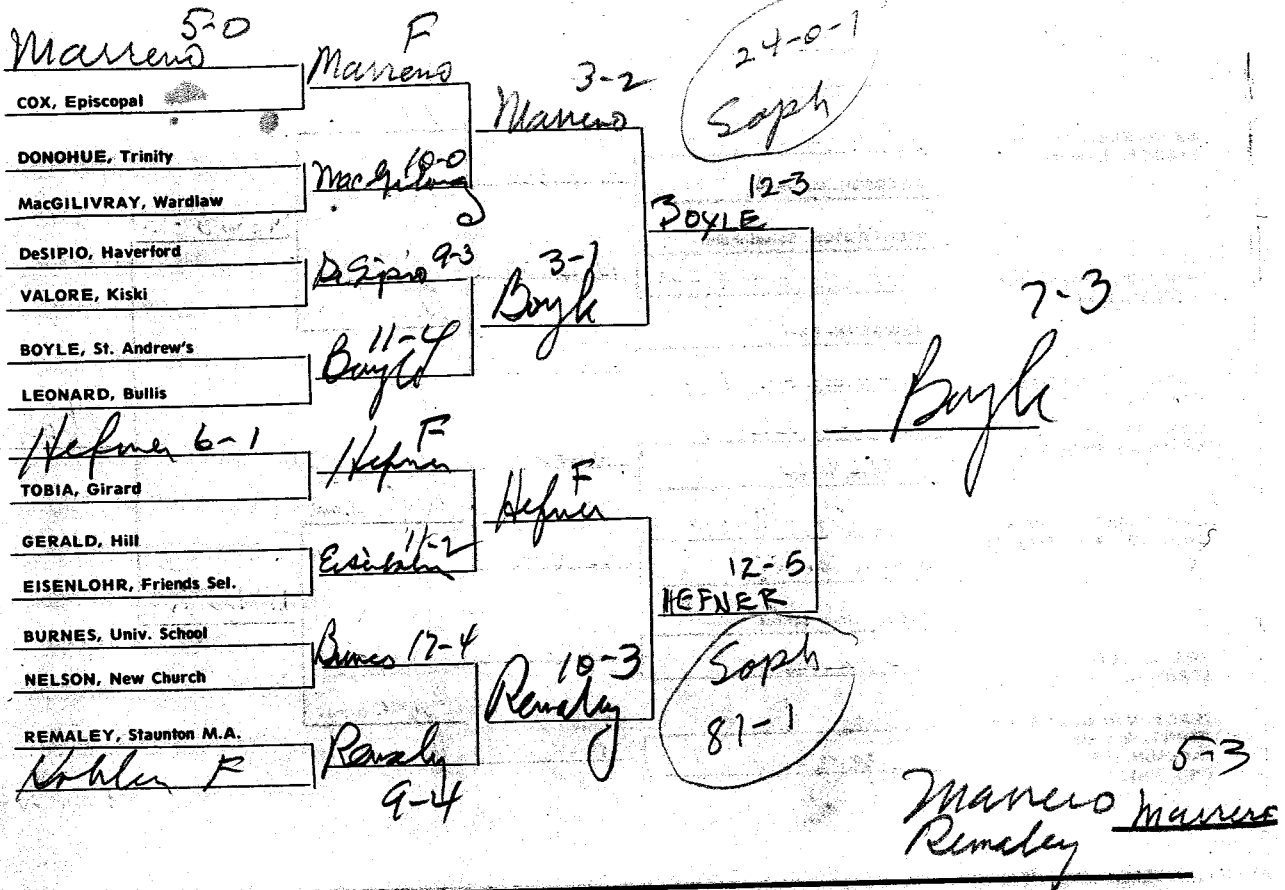 Marreno 5-0
COX, Episcopal
DONOHUE, Trinity
MacGILIVRAY, Wardlaw
DeSIPIO, Haverford
VALORE, Kiski
BOYLE, St. Andrew's
LEONARD, Bullis
Hefner 6-1
TOBIA, Girard
GERALD, Hill
EISENLOHR, Friends Sel.
BURNES, Univ. School
NELSON, New Church
REMALEY, Staunton M.A.
F
F
Marreno
10-0
DeSipio 9-3
11-4
Boyle
F
Hefner
11-2
Burnes 17-4
Remaly
9-4
3-2
Marreno
Boyle
F
Hefner
10-3
Remaley
24-0-1
Soph
12-3
BOYLE
12-5
HEFNER
Soph
7-3
Boyle
5-3
Marrero Marrero
Remaley